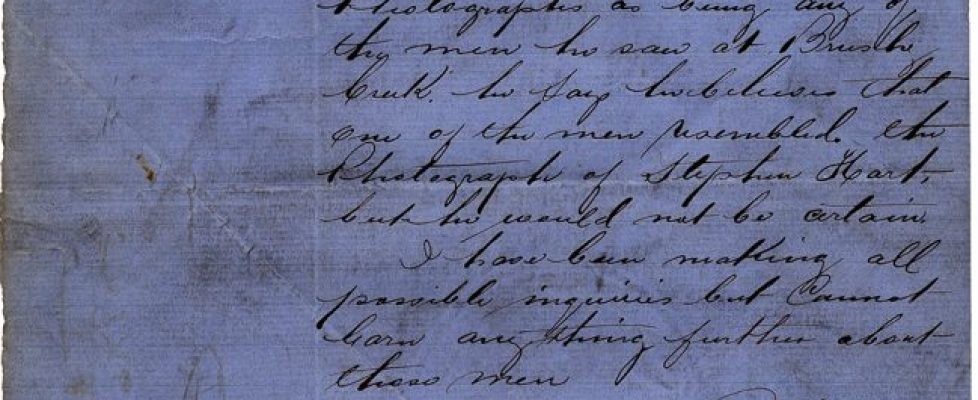 Photographs as being any of
the men he saw at Brush
Creek. he says he believes that
one of the men resembled the
Photograph of Stephen Hart,
but he would not be certain.
I have been making all
possible inquiries but Cannot
learn any thing further about
those men